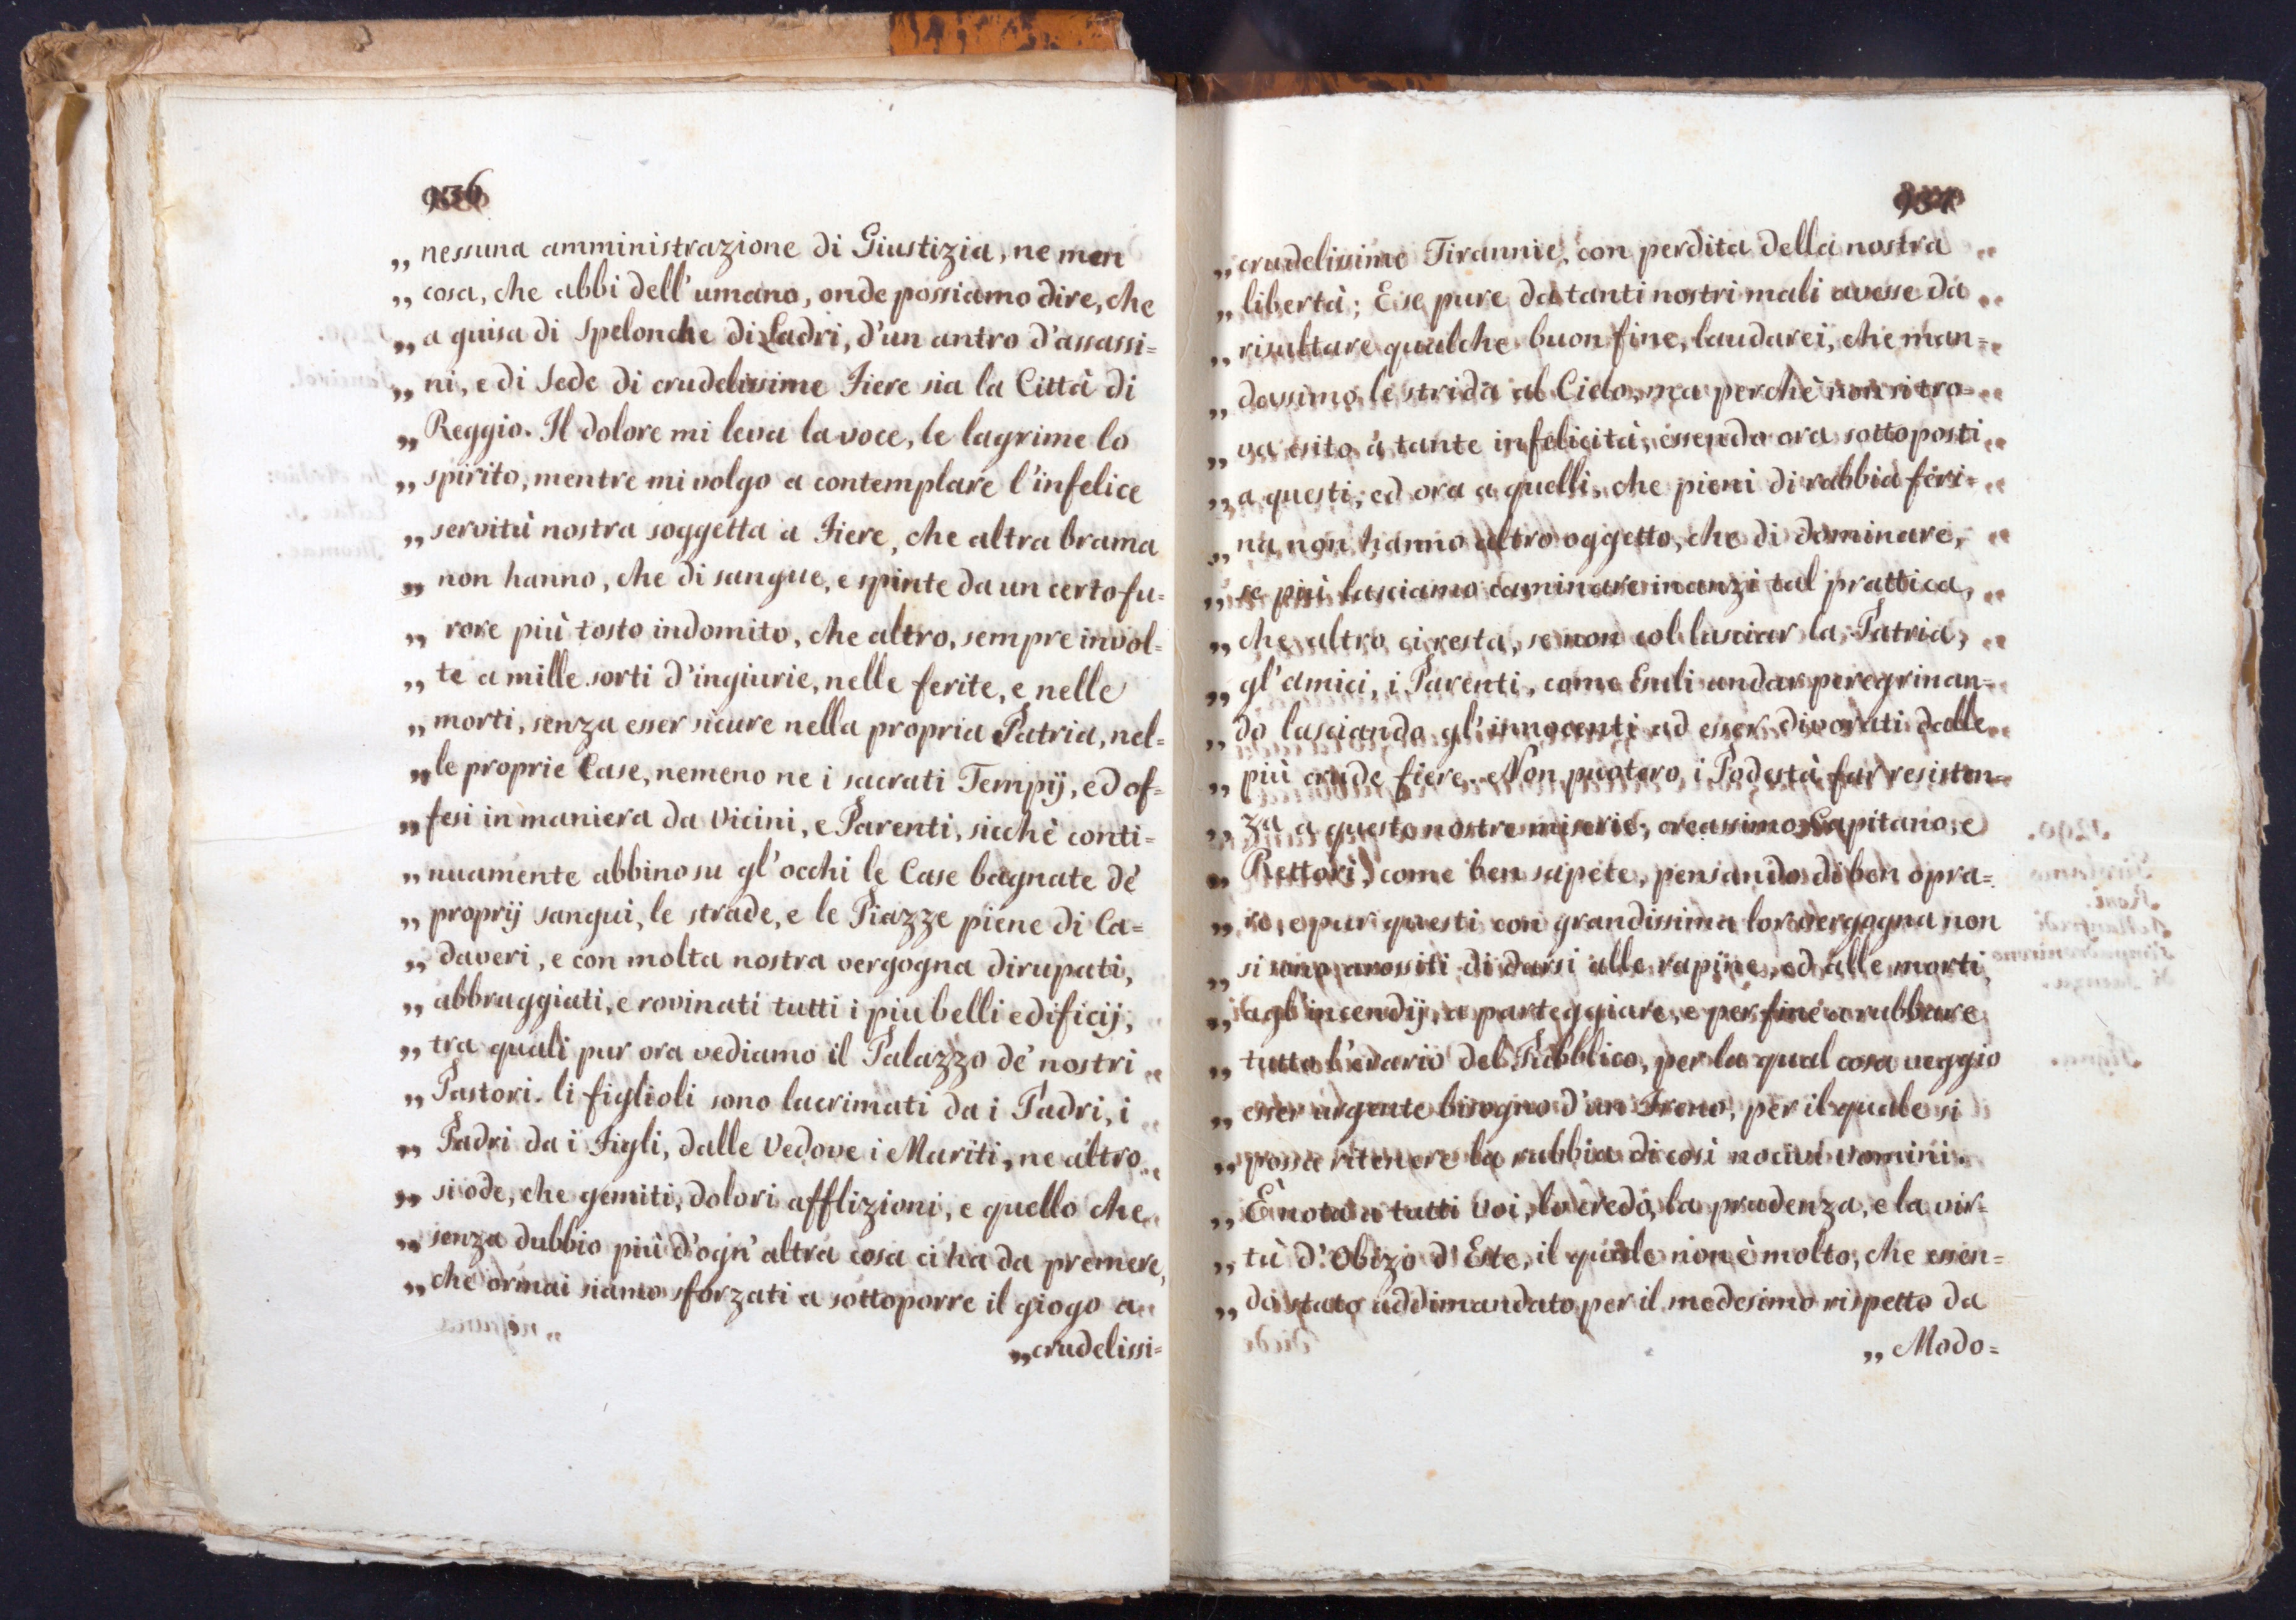 936
„ nessuna amministrazione di Giustizia, ne men
„ cosa, che abbi dell'umano, onde possiamo dire, che
„ a guisa di Spelonche di Ladri, d'un antro d'assassi=
„ ni, e di Sede di crudelissime Fiere sia la Città di
„ Reggio. Il dolore mi leva la voce, le lagrime lo
„ spirito, mentre mi volgo a contemplare l'infelice
„ servitù nostra soggetta a Fiere, che altra brama
„ non hanno, che di sangue, e spinte da un certo fu=
„ rore più tosto indomito, che altro, sempre invol=
„ te a mille sorti d'ingiurie, nelle ferite, e nelle
„ morti, senza esser sicure nella propria Patria, nel=
„ le proprie Case, nemeno ne i sacrati Tempij, ed of=
„ fesi in maniera da Vicini, e Parenti, sicchè conti=
„ nuamente abbino su gl'occhi le Case bagnate de'
„ proprij sangui, le strade, e le Piazze piene di Ca=
„ daveri, e con molta nostra vergogna dirupati,
„ abbraggiati, e rovinati tutti i piu belli edificij,
„ tra quali pur ora vediamo il Palazzo de' nostri
„ Pastori. li figlioli sono lacrimati da i Padri, i
„ Padri da i Figli, dalle Vedove i Mariti, ne altro
„ si ode, che gemiti, dolori afflizioni, e quello che
„ senza dubbio più d'ogn'altra cosa ci ha da premere,
„ che ormai siamo sforzati a sottoporre il giogo a
„ crudelissi=
937
„ crudelissime Tirannie, con perdita della nostra
„ libertà; E se pure da tanti nostri mali avesse da
„ risultare qualche buon fine, laudarei, che man=
„ dassimo le strida al Cielo, ma perchè non ritro=
„ va esito a tante infelicità, essendo ora sottoposti
„ a questi, ed ora a quelli, che pieni di rabbia feri=
„ na non hanno altro oggetto, che di dominare,
„ se più lasciamo caminare inanzi tal prattica,
„ che altro ci resta, se non col lasciar la Patria,
„ gl'amici, i Parenti, come Esuli andar peregrinan=
„ do lasciando gl'innocenti ad esser divorati dalle
„ più crude fiere. Non puotero i Podestà far resisten=
„ za a queste nostre miserie, creassimo Capitano, e
„ Rettori, come ben sapete, pensando di ben opra=
„ re, e pur questi con grandissima lor vergogna non
„ si sono arossiti di darsi alle rapine, ed alle morti,
„ agl'incendij, a parteggiare, e per fine a rubbare
„ tutto l'erario del Pubblico, per la qual cosa veggio
„ esser urgente bisogno d'un Freno, per il quale si
„ possa ritenere la rabbia di così nocivi uomini.
„ È nota a tutti Voi, lo credo, la prudenza, e la vir=
„ tù d'Obizo d'Este, il quale non è molto, che essen=
„ do stato addimandato per il medesimo rispetto da
„ Modo=